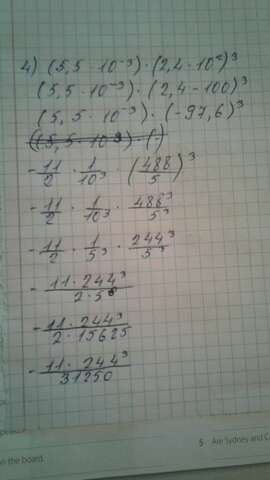 4) (5,5 · 10⁻³) · (2,4 · 10²)³
(5,5 · 10⁻³) · (2,4 - 100)³
(5,5 · 10⁻³) · (-97,6)³
- 11/2 · 1/10³ · (488/5)³
- 11/2 · 1/10³ · 488³/5³
- 11/2 · 1/5³ · 244³/5³
- 11 · 244³/2 · 5⁶
- 11 · 244³/2 · 15625
- 11 · 244³/31250
5 Are Sydney and C
on the board.